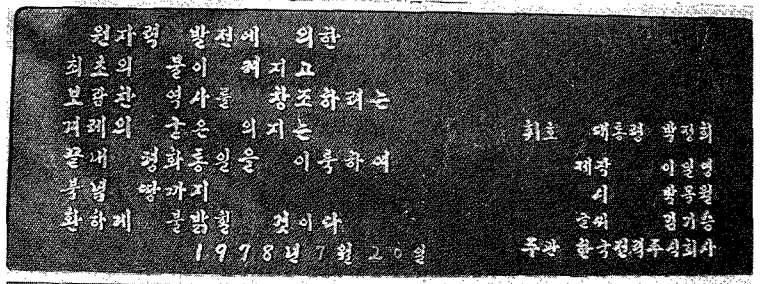 원자력 발전에 의한
최초의 불이 켜지고
보람찬 역사를 창조하려는
겨레의 굳은 의지는
끝내 평화통일을 이룩하여
북녘 땅까지
환하게 불밝힐 것이다
1978년 7월 20일
휘호 대통령 박정희
제작 이일영
시 박목월
글씨 김기승
주관 한국전력주식회사